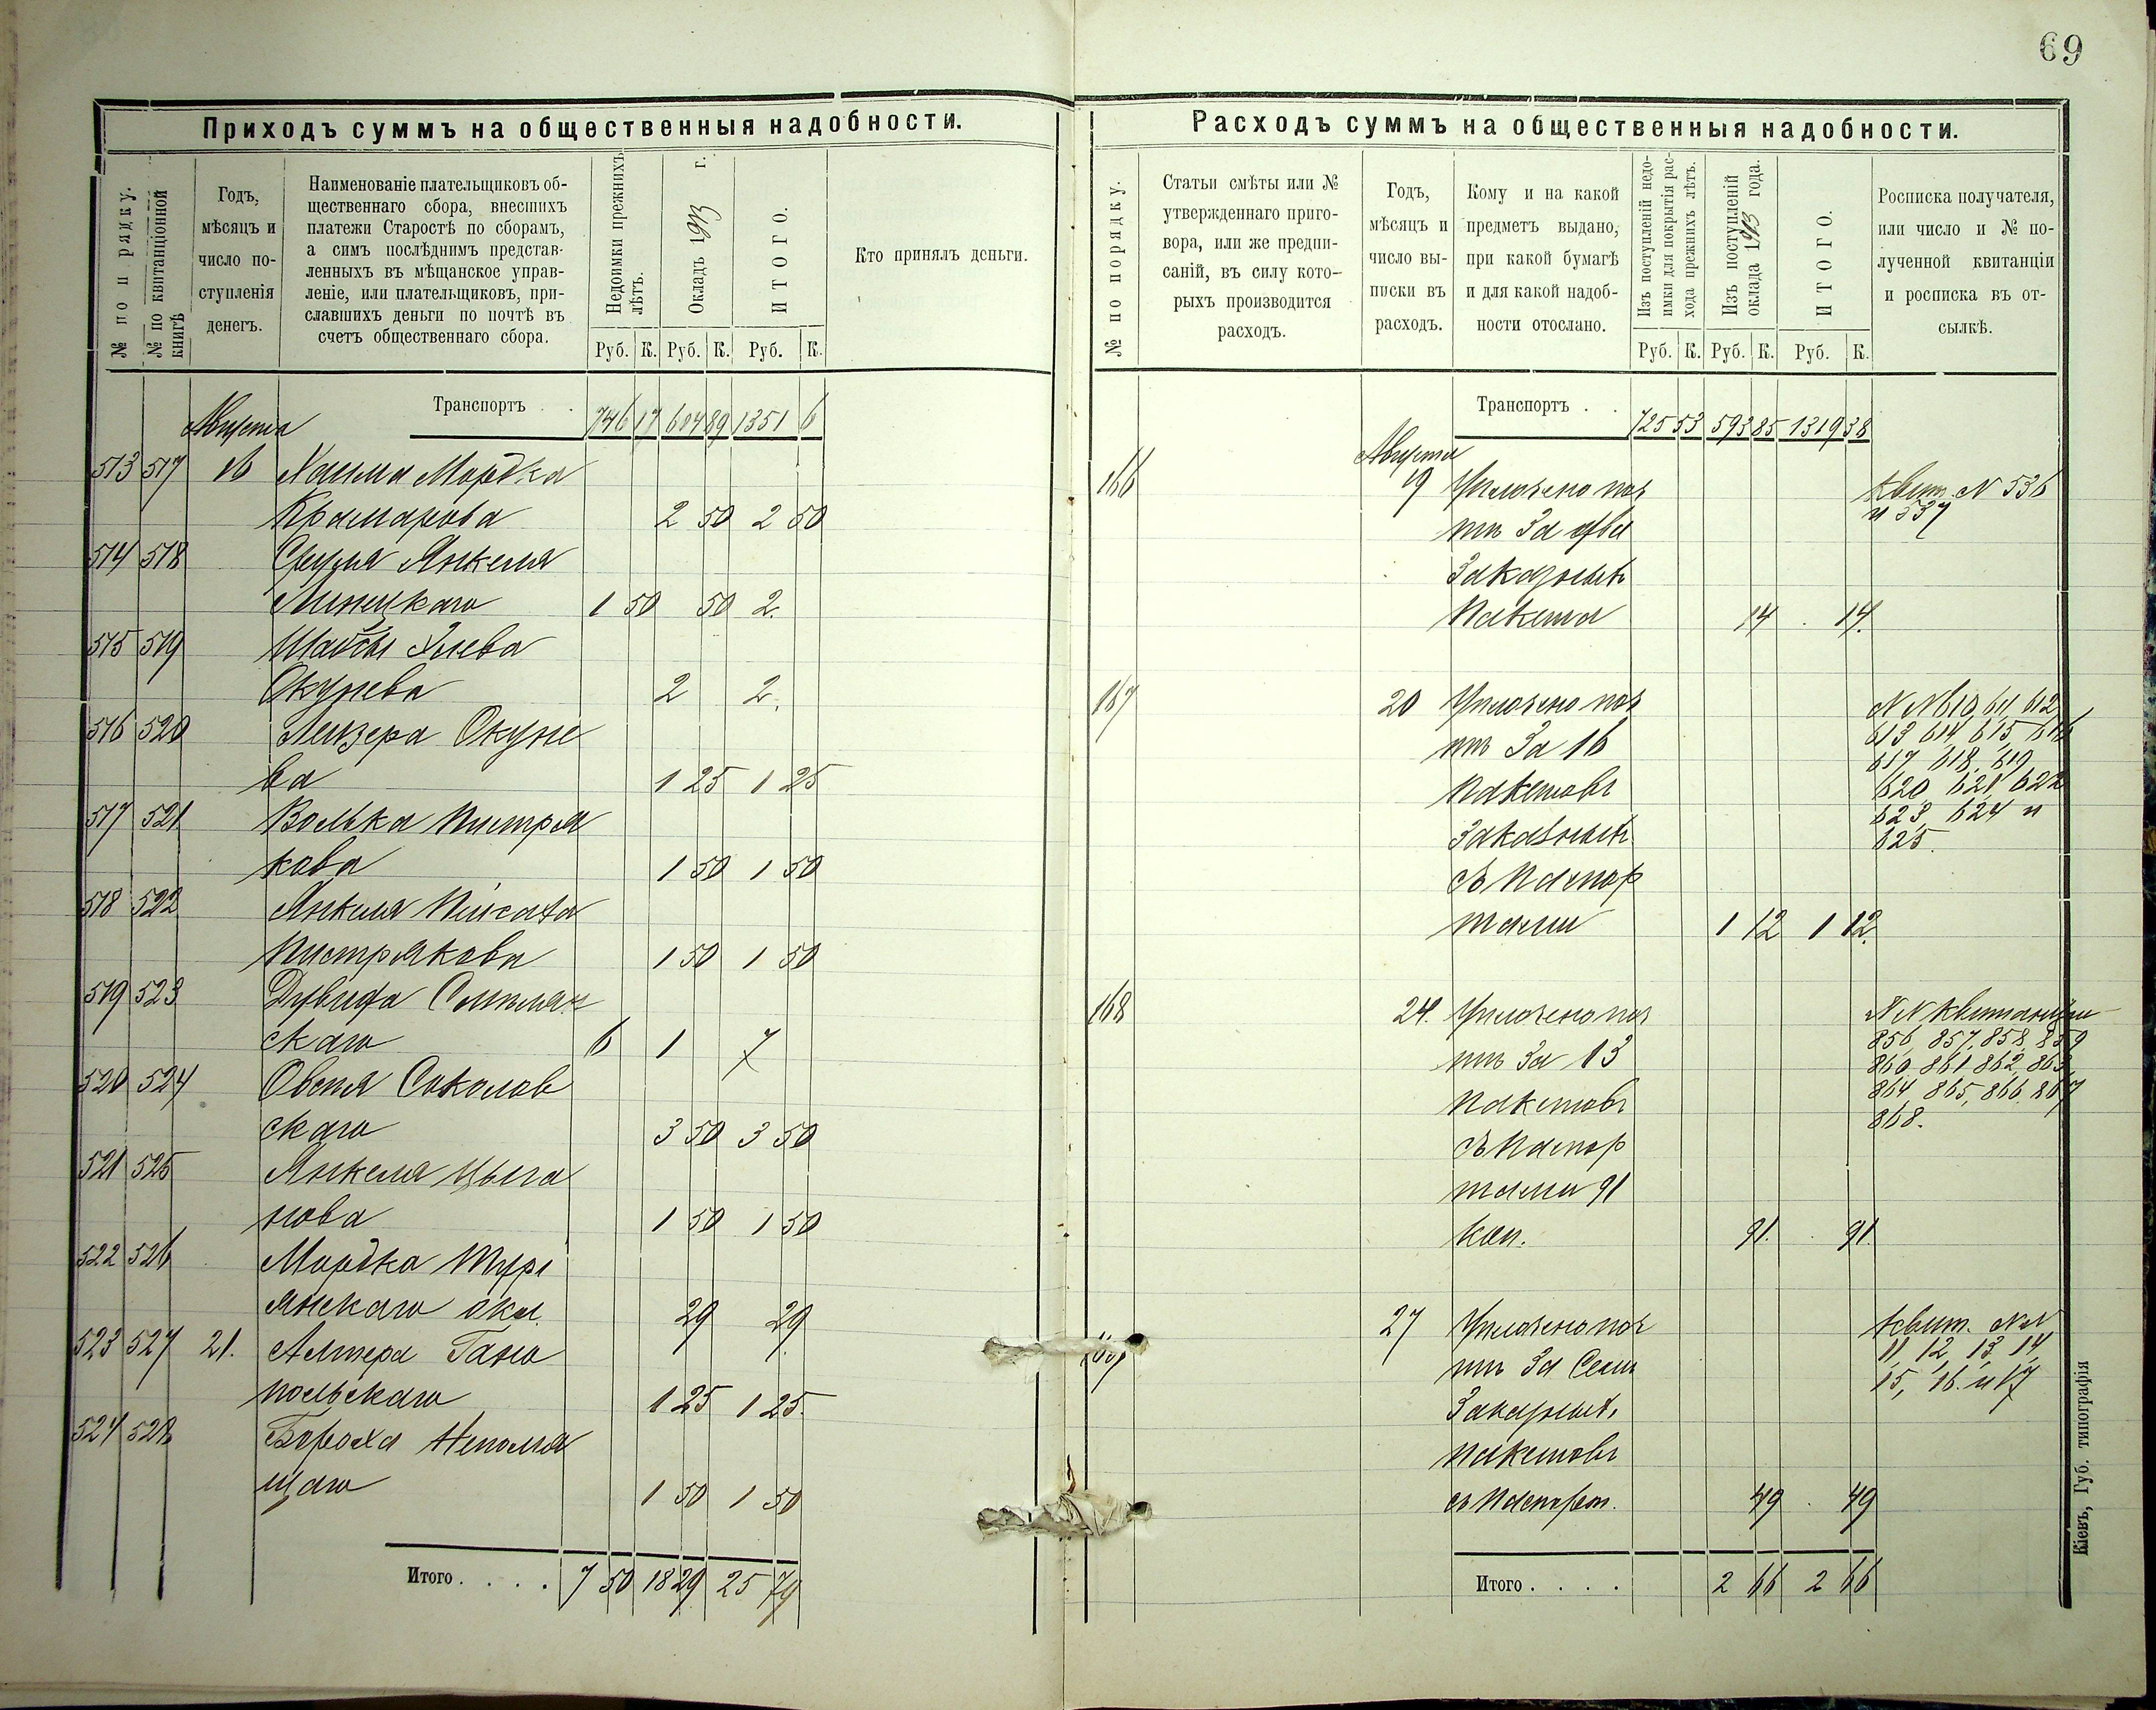 69
Приходъ суммъ на общественныя надобности.
№ по порядку.
№ по квитанціонной книгѣ
Годъ, мѣсяцъ и число поступленія денегъ.
Наименованіе плательщиковъ об-
щественнаго сбора, внесшихъ
платежи Старостѣ по сборамъ,
а симъ послѣднимъ представ-
ленныхъ въ мѣщанское управ-
леніе, или плательщиковъ, при-
славшихъ деньги по почтѣ въ
счетъ общественнаго сбора.
Недоимки прежнихъ лѣтъ.
Окладъ 1913 г.
ИТОГО.
Кто принялъ деньги.
Руб. К. Руб. К. Руб. К.
Транспортъ . . 746 17 604 89 1351 6
Августа
513 517 Хаима Мордка
Крамарова 2 50 2 50
514 518 Сруля Янкеля
Липецкаго 1 50 50 2.
515 519 Шабсы
Окунева 2 2.
516 520 Лейзера Окуне
ва 1 25 1 25
517 521 Волька Пистря
кова 1 50 1 50
518 522 Янкеля
Пистрякова 1 50 1 50
519 523 Дувида
скаго 6 1 7
520 524 Овсея Соколов
скаго 3 50 3 50
521 525 Янкеля Цыга
нова 1 50 1 50
522 526 Мордка Тур
янскаго окл. 29 29
523 527 21. Алтера Гано
польскаго 1 25 1 25.
524 528 Бороха Непомя
щаго 1 50 1 50
Итого . . . . 7 50 18 29 25 79
Расходъ суммъ на общественныя надобности.
№ по порядку.
Статьи смѣты или №
утвержденнаго приго-
вора, или же предпи-
саній, въ силу кото-
рыхъ производится
расходъ.
Годъ,
мѣсяцъ и
число вы-
писки въ
расходъ.
Кому и на какой
предметъ выдано,
при какой бумагѣ
и для какой надоб-
ности отослано.
Изъ поступленій недо-
имки для покрытія рас-
хода прежнихъ лѣтъ.
Изъ поступленій
оклада 1913 года.
ИТОГО.
Росписка получателя,
или число и № по-
лученной квитанціи
и росписка въ от-
сылкѣ.
Руб. К. Руб. К. Руб. К.
Транспортъ . . 725 53 593 85 1319 38
Августа
166 19 Уплочено поч
тѣ За два
Заказныхъ
Пакета 14 . 14.
Квит. N 536
и 537
167 20 Уплочено поч
тѣ За 16
Пакетовъ
Заказныхъ
съ Паспор
тами 1 12 1 12.
N N 610, 611, 612
613 614 615, 616
617 618, 619
620 621 622
623, 624 и
625.
168 24. Уплочено поч
тѣ За 13
Пакетовъ
съ Паспор
тами 91
коп. 91. . 91.
N N Квитанціи
856, 857, 858, 859
860, 861 862, 863,
864, 865, 866, 867
868.
169 27 Уплочено поч
тѣ За Семь
Заказныхъ
Пакетовъ
съ Паспорт. 49 . 49
Квит. N N
11, 12, 13, 14,
15, 16. и 17
Итого . . . . 2 66 2 66
Кіевъ, Губ. типографія